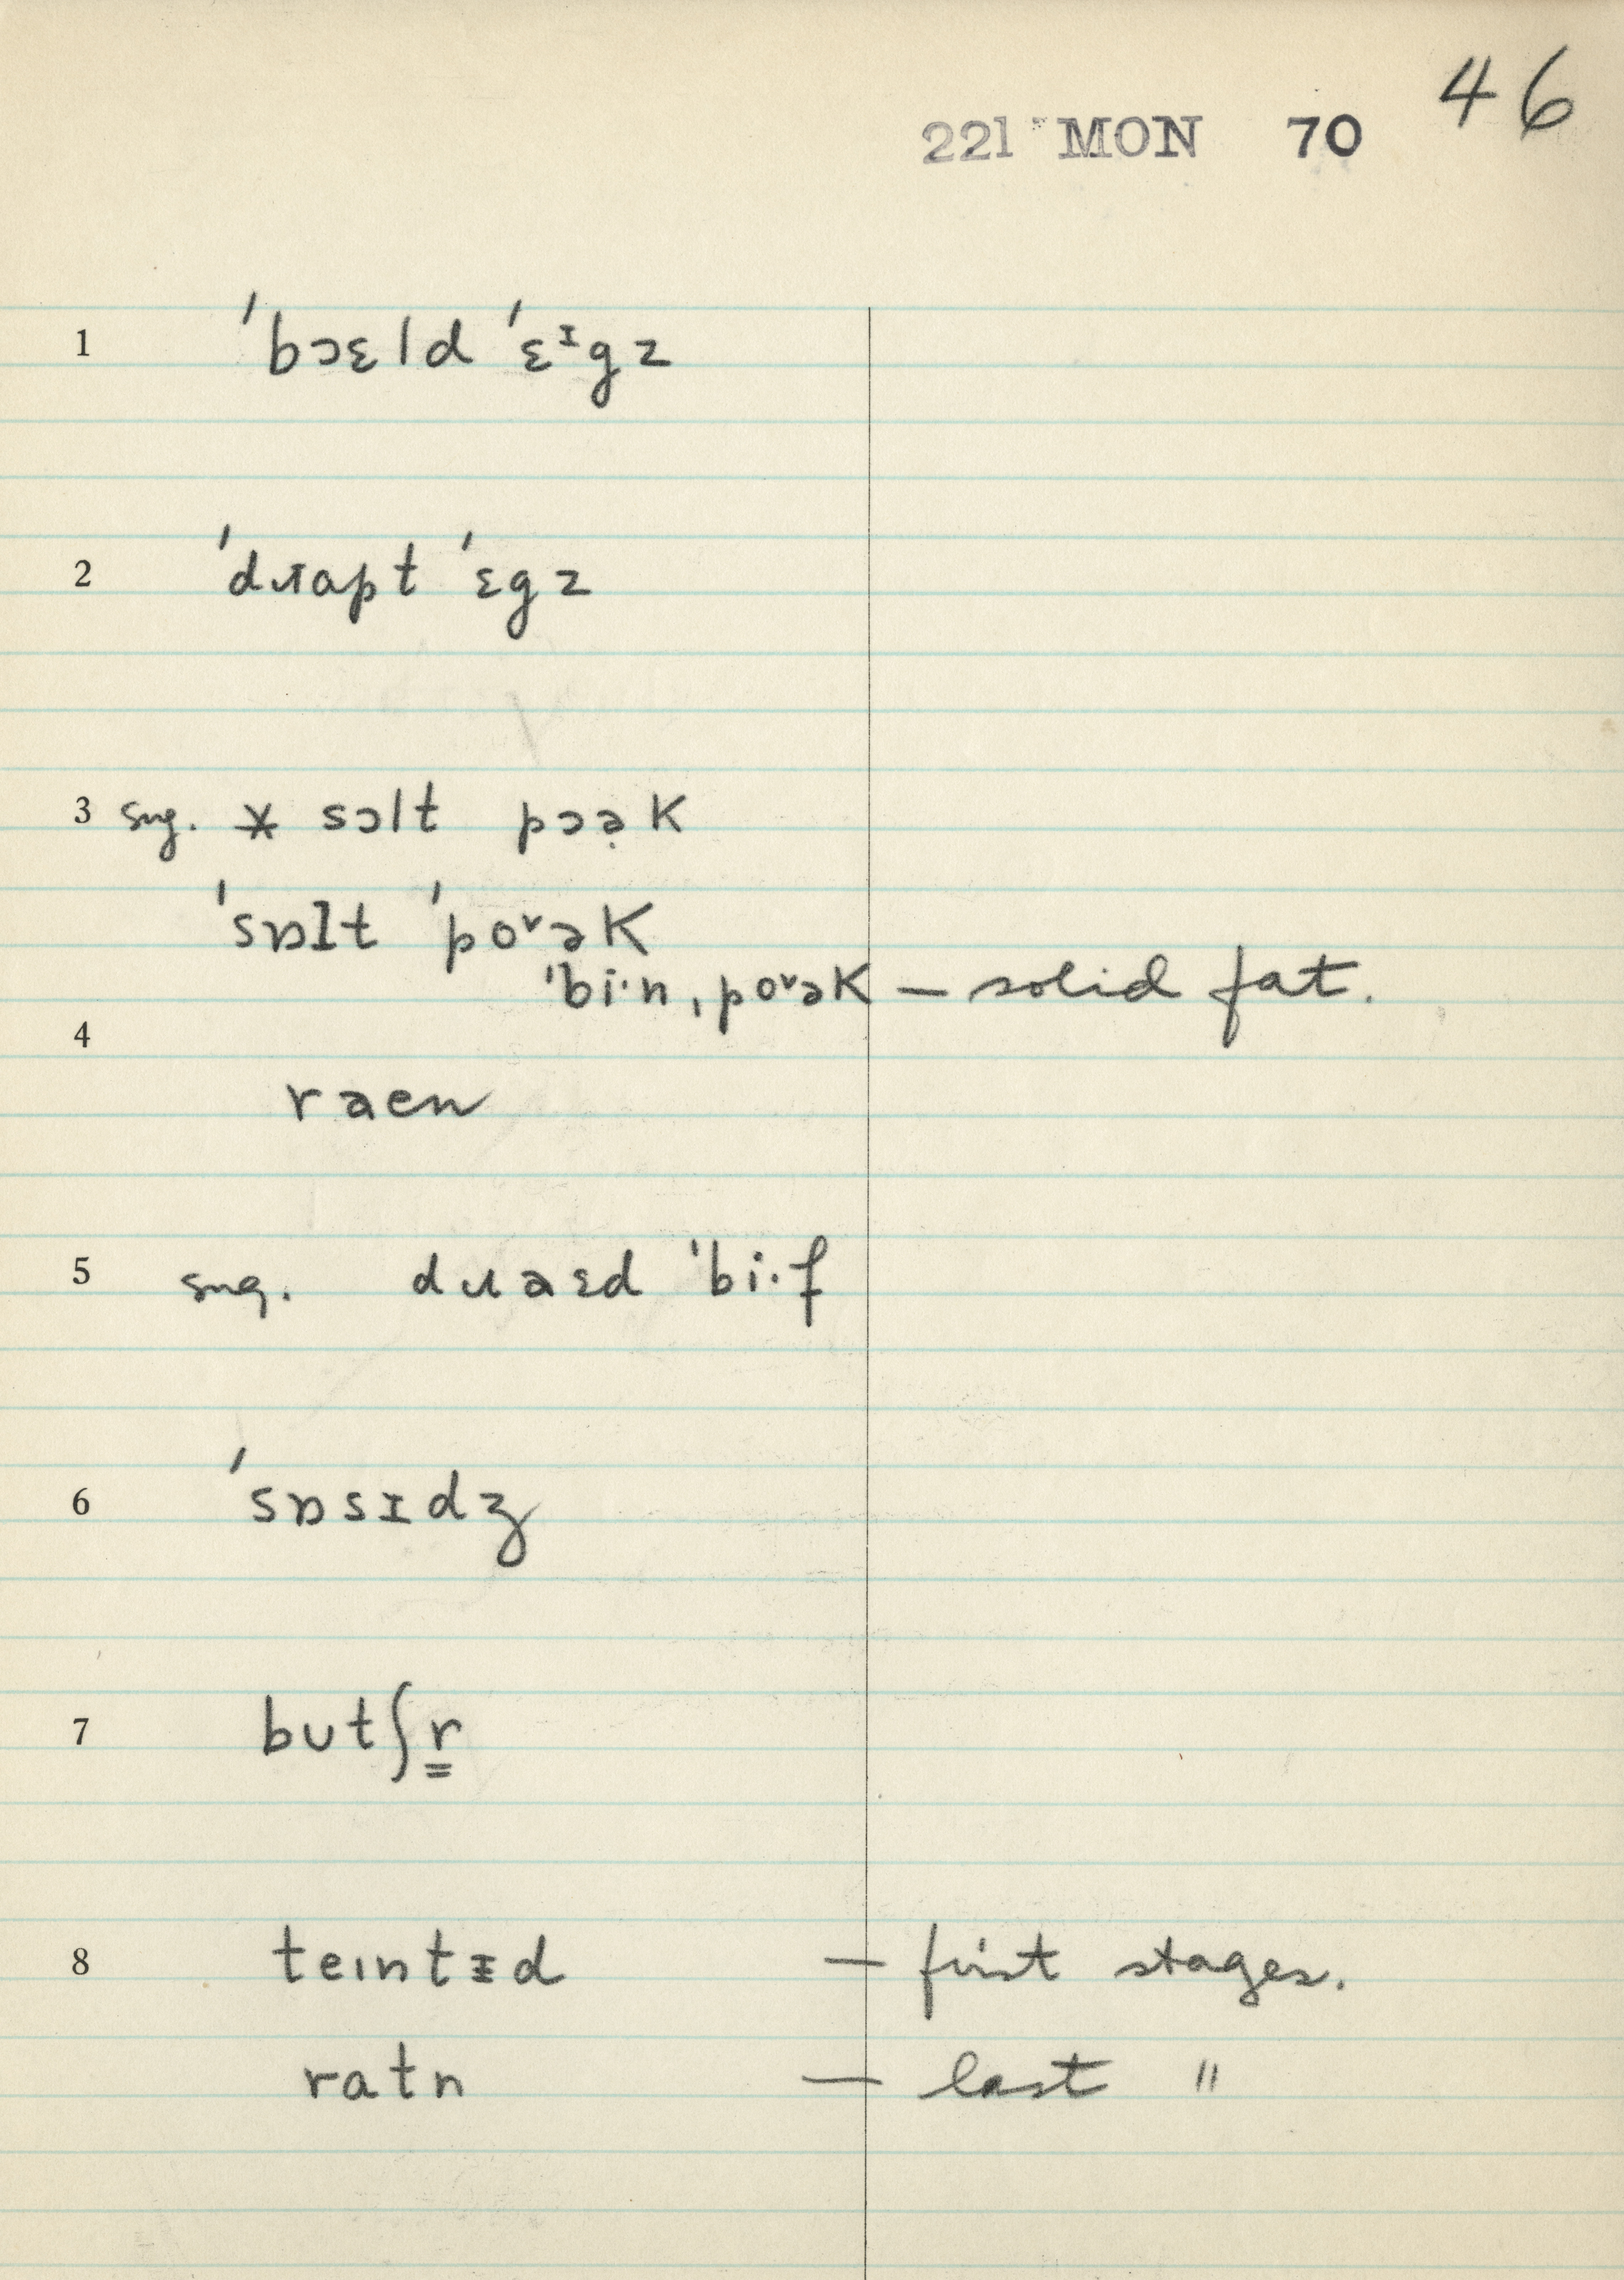 46
221 MON 70
1 ˈbɔɛld ˈɛᶦgz
2 ˈdɹapt ˈɛgz
3 sug. * sɔlt pɔə̣k
ˈsɒlt ˈpoᵛək
ˈbi·n ˌpoᵛək — solid fat.
4
raen
5 sug. dɹaɛd ˈbi·f
6 ˈsɒsɪdʒ
7 butʃr̳
8 teɪntɪ̵d — first stages.
ratn — last "